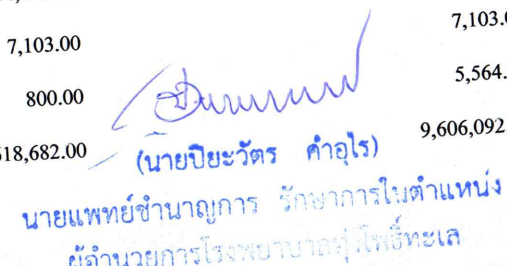 7,103.00
800.00 5,564.
618,682.00 9,606,092.
(นายปิยะวัตร คำอุไร)
นายแพทย์ชำนาญการ รักษาการในตำแหน่ง
ผู้อำนวยการโรงพยาบาลทุ่งโพธิ์ทะเล